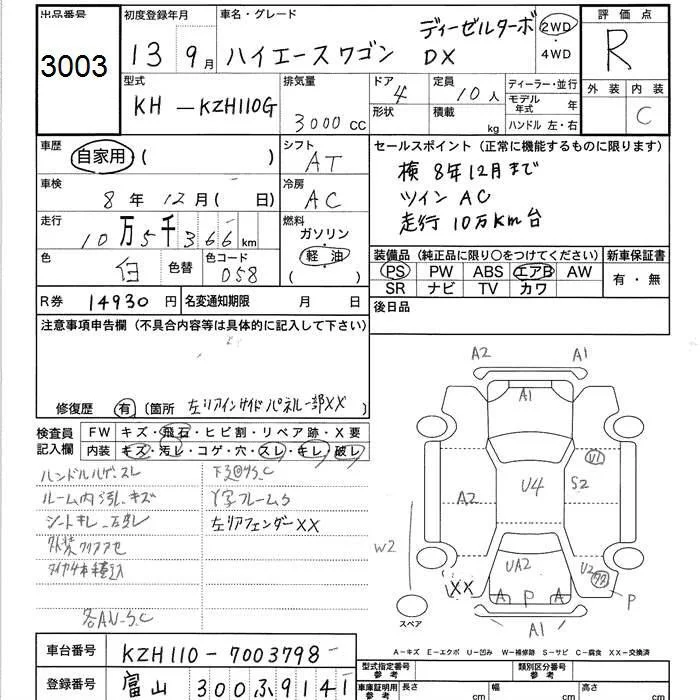 出品番号 初度登録年月 車名・グレード 評価点
3003 13 9月 ハイエースワゴン ディーゼルターボ DX 2WD ・4WD R
型式 排気量 ドア 定員 ディーラー・並行 外装 内装
KH-KZH110G 3000 CC 4 10人 モデル年式 年 C
形状 積載 kg ハンドル 左・右
車歴 シフト セールスポイント(正常に機能するものに限ります)
自家用 ( ) AT 検 8年12月まで
車検 冷房 ツイン AC
8年 12月( 日) AC 走行 10万Km台
走行 燃料
10万5千366km ガソリン
軽油
( )
色 色替 色コード
白 058
装備品(純正品に限り○をつけてください) 新車保証書
PS PW ABS エアB AW 有・無
SR ナビ TV カワ
R券 14930円 名変通知期限 月 日 後日品
注意事項申告欄(不具合内容等は具体的に記入して下さい)
修復歴 有 〔箇所 左リアインサイドパネル一部XX 〕
検査員記入欄 FW キズ・飛石・ヒビ割・リペア跡・X要
内装 キズ・汚レ・コゲ・穴・スレ・キレ・破レ
ハンドルハゲ、スレ
ルーム内汚レ、キズ
左リアフェンダーXX
各AU、S、C
A2 A1
A1
U1
A2 U4 S2
W2
UA2 U2
XX A P A P
スペア A1
A−キズ E−エクボ U−凹み W−補修跡 S−サビ C−腐食 XX−交換済
車台番号 KZH110-7003798
登録番号 富山 300ふ9141
型式指定番号 参考 類別区分番号 参考
車庫証明用 参考 長さ cm 幅 cm 高さ cm